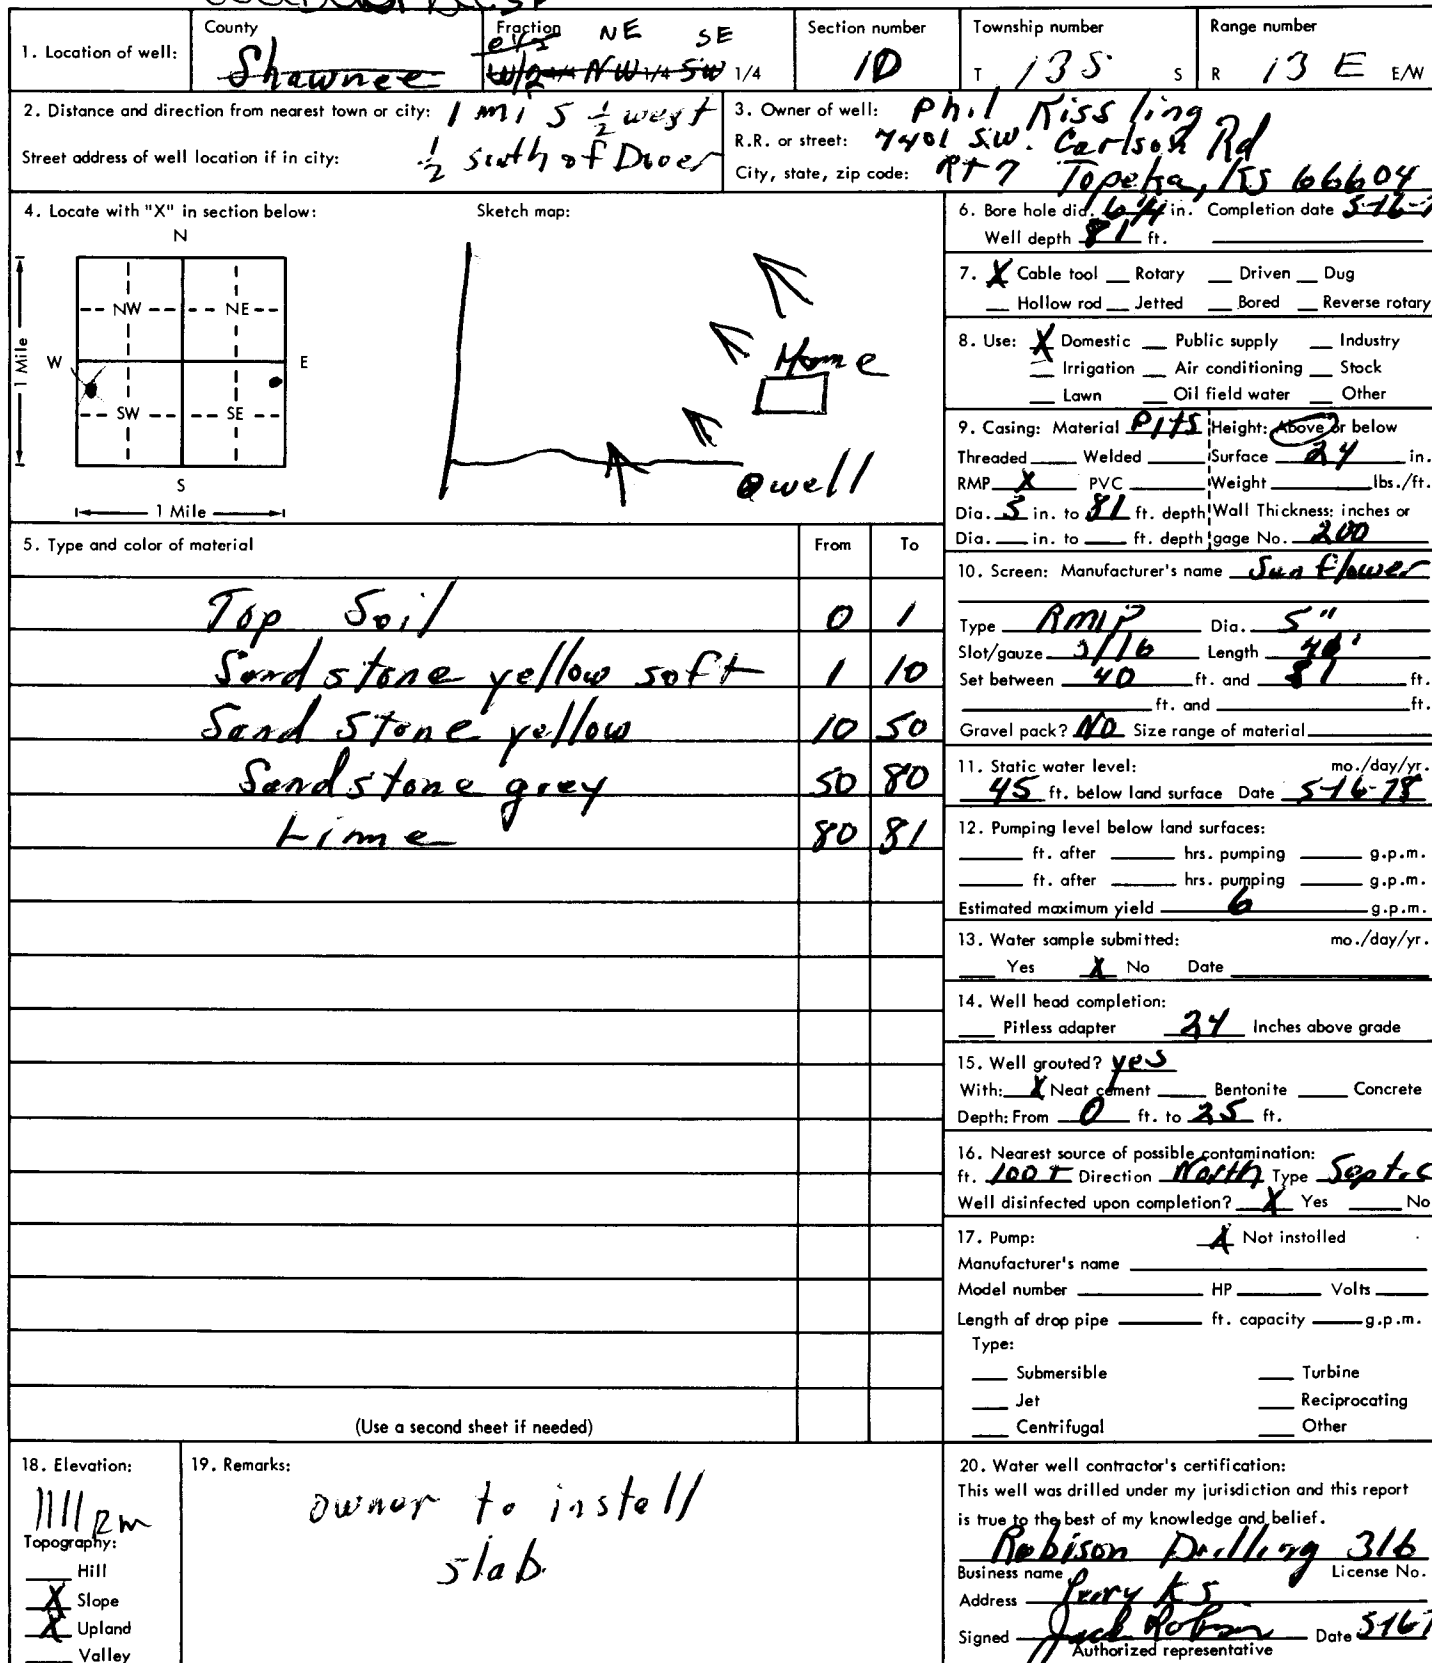 County
Fraction
Section number
Township number
Range number
1. Location of well:
Shawnee
NE SE
W/2 1/4 NW 1/4 SW 1/4
10
T 13 S S
R 13 E E/W
2. Distance and direction from nearest town or city: 1 mi S 1/2 west
Street address of well location if in city: 1/2 south of Dover
3. Owner of well: Phil Kissling
R.R. or street: 7401 S.W. Carlson Rd
City, state, zip code: Rt 7 Topeka, KS 66604
4. Locate with "X" in section below:
Sketch map:
N
NW NE
W E
SW SE
S
1 Mile
1 Mile
Home
well
5. Type and color of material From To
Top Soil 0 1
Sandstone yellow soft 1 10
Sand Stone yellow 10 50
Sandstone grey 50 80
Lime 80 81
(Use a second sheet if needed)
6. Bore hole dia. 6 1/4 in. Completion date 5-16-7
Well depth 81 ft.
7. X Cable tool Rotary Driven Dug
Hollow rod Jetted Bored Reverse rotary
8. Use: X Domestic Public supply Industry
Irrigation Air conditioning Stock
Lawn Oil field water Other
9. Casing: Material Height: Above or below
Threaded Welded Surface 24 in.
RMP X PVC Weight lbs./ft.
Dia. 5 in. to 81 ft. depth Wall Thickness: inches or
Dia. in. to ft. depth gage No. 200
10. Screen: Manufacturer's name Sunflower
Type RMP Dia. 5"
Slot/gauze /16 Length 40'
Set between 40 ft. and 81 ft.
ft. and ft.
Gravel pack? NO Size range of material
11. Static water level: mo./day/yr.
45 ft. below land surface Date 5-16-78
12. Pumping level below land surfaces:
ft. after hrs. pumping g.p.m.
ft. after hrs. pumping g.p.m.
Estimated maximum yield 6 g.p.m.
13. Water sample submitted: mo./day/yr.
Yes X No Date
14. Well head completion:
Pitless adapter 24 Inches above grade
15. Well grouted? yes
With: X Neat cement Bentonite Concrete
Depth: From 0 ft. to 25 ft.
16. Nearest source of possible contamination:
ft. 100+ Direction North Type Septic
Well disinfected upon completion? X Yes No
17. Pump: X Not installed
Manufacturer's name
Model number HP Volts
Length of drop pipe ft. capacity g.p.m.
Type:
Submersible Turbine
Jet Reciprocating
Centrifugal Other
18. Elevation:
1111
Topography:
Hill
X Slope
X Upland
Valley
19. Remarks:
owner to install
slab.
20. Water well contractor's certification:
This well was drilled under my jurisdiction and this report
is true to the best of my knowledge and belief.
Robison Drilling 316
Business name License No.
Address Perry KS
Signed Jack Robison Date 5-16-7
Authorized representative